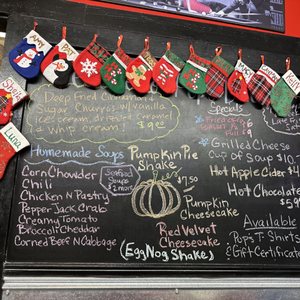 Amy
Shell
Luna
Deep Fried Cinnamon &
Sugar Churros w/ Vanilla
ice cream, drizzled Caramel
& whip cream! 9.99
Homemade Soups
Corn Chowder
Chili
Chicken N Pastry
Pepper Jack Crab
Creamy Tomato
Broccoli Cheddar
Corned Beef N Cabbage
Seafood
Soups
$2 more
Pumpkin Pie
Shake
$7.50
Pumpkin
Cheesecake
Red Velvet
Cheesecake
(Egg Nog Shake)
Specials
Grilled Cheese
Cup of Soup $10
Hot Apple Cider $4
Hot Chocolate
Available
T-Shirts
& Gift Certificate